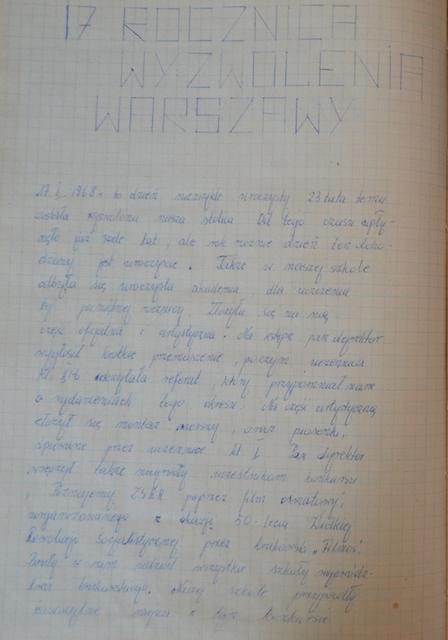 17 ROCZNICA
WYZWOLENIA
WARSZAWY
17. I. 1968 r. to dzień niezwykle uroczysty 23 lata temu
została wyzwolona nasza stolica. Od tego czasu upły-
nęło już wiele lat, ale rok rocznie dzień ten
jest uroczyście. Także w naszej szkole
odbyła się uroczysta akademia, dla uczczenia
tej pamiętnej rocznicy. Złożyła się na nią
część oficjalna i artystyczna. Na wstępie pan dyrektor
wygłosił krótkie przemówienie, poczym uczennica
kl. odczytała referat, który przypomniał nam
o wydarzeniach tego okresu. Na część artystyczną
złożył się montaż oraz piosenki,
śpiewane przez uczennice kl. Pan dyrektor
wręczył także nagrody uczestnikom konkursu
"Poznajemy ZSRR poprzez film oświatowy",
zorganizowanego z okazji 50-lecia Wielkiej
Rewolucji Socjalistycznej przez krakowski "Filmos".
Brały w nim udział wszystkie szkoły województ-
wa krakowskiego. Naszej szkole przypadły
miejsca w tym konkursie